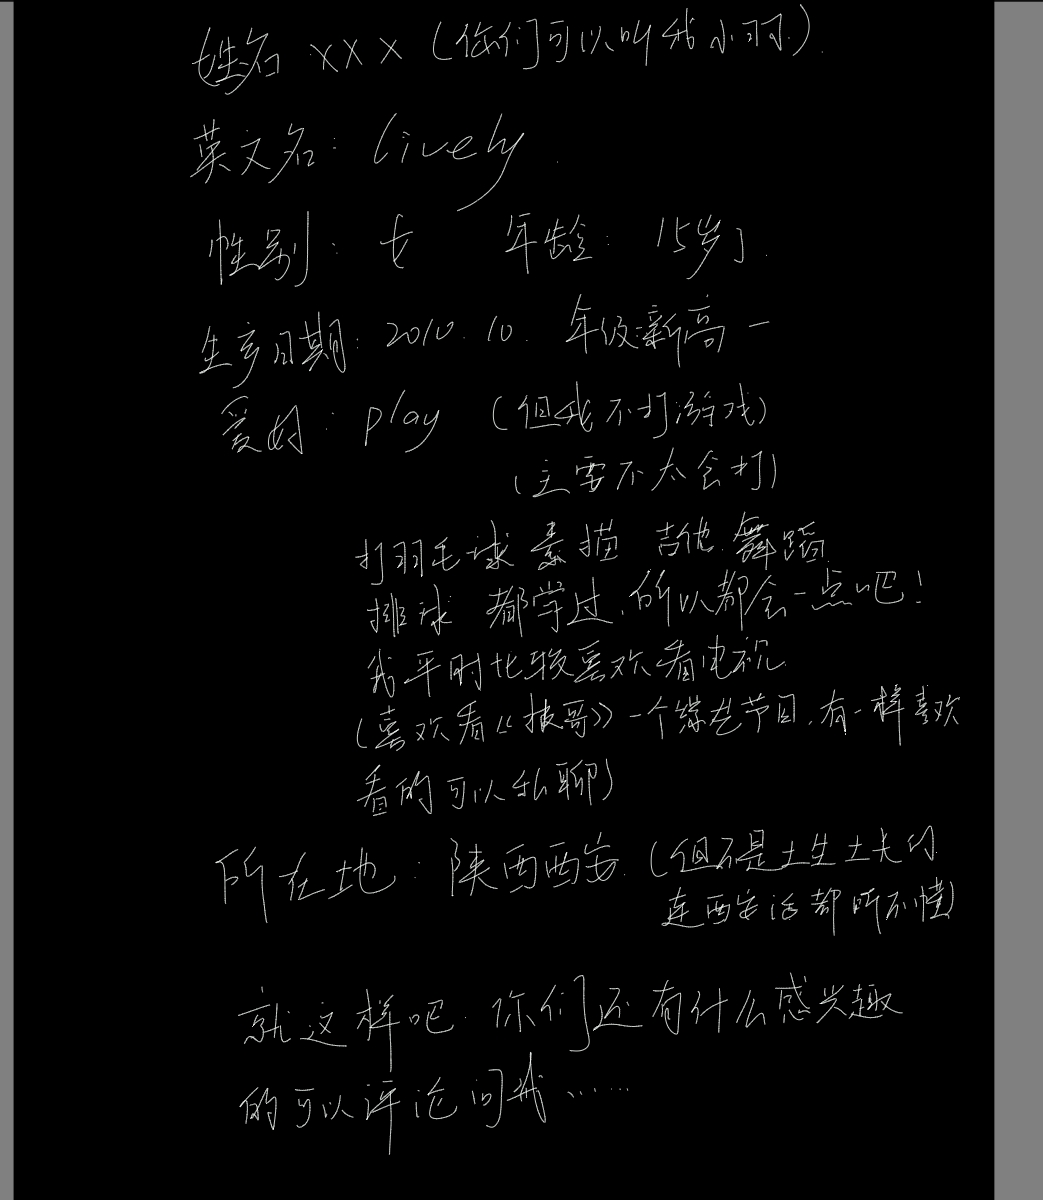 姓名 XXX (你们可以叫我小羽).
英文名: lively.
性别: 女 年龄: 15岁了.
生产日期: 2010.10. 年级:新高一
爱好: play (但我不打游戏)
(主要不太会打)
打羽毛球 素描 吉他. 舞蹈.
排球 都学过, 所以都会一点吧!
我平时比较喜欢看电视.
(喜欢看《披哥》一个综艺节目, 有一样喜欢
看的可以私聊)
所在地: 陕西西安. (但不是土生土长的.
连西安话都听不懂)
就这样吧. 你们还有什么感兴趣
的可以评论问我......